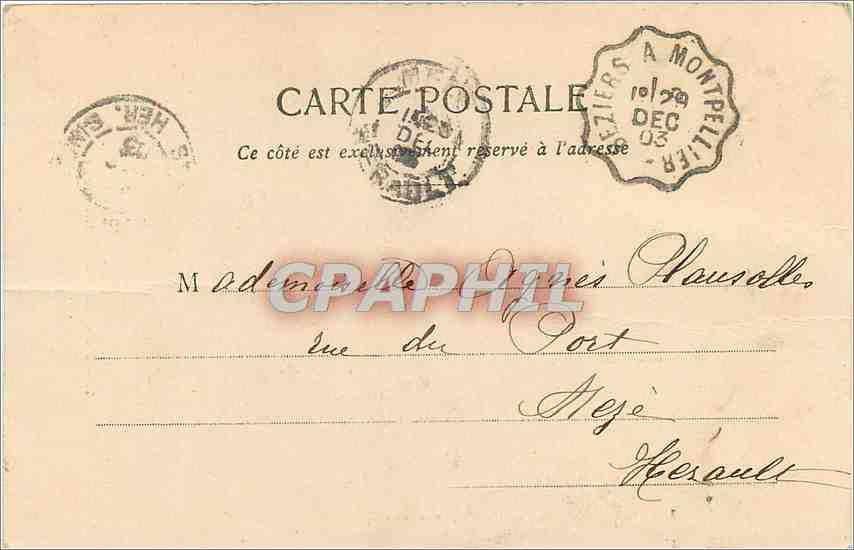 CARTE POSTALE
Ce côté est exclusivement réservé à l'adresse
BEZIERS A MONTPELLIER
29
DEC
03
DEC
RAULT
HER.
Mademoiselle Agnès Plausolles
CPAPHIL
rue du Port
Mezé
Herault